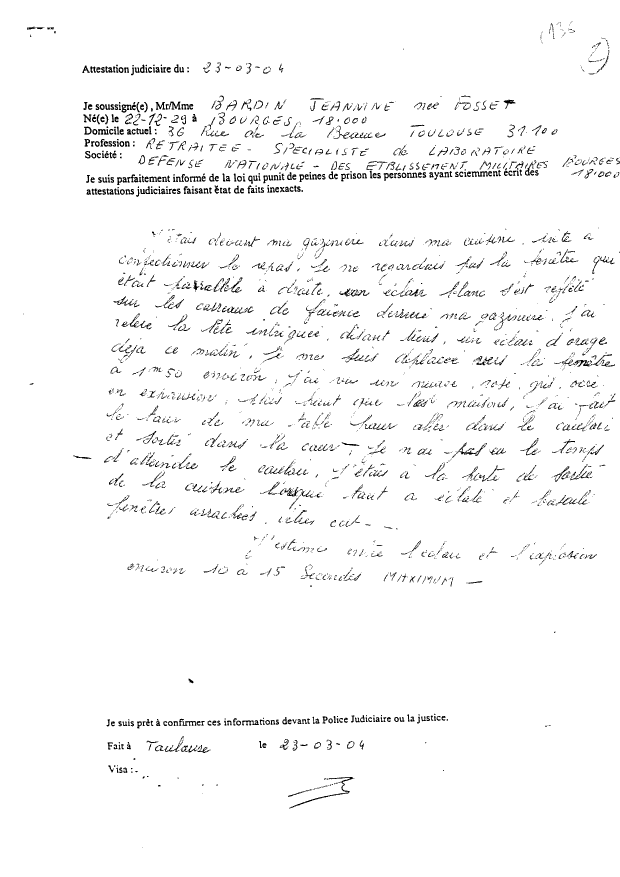 (136
2)
Attestation judiciaire du : 23-03-04
Je soussigné(e), Mr/Mme BARDIN JEANNINE née FOSSET
Né(e) le 22-12-29 à BOURGES 18.000
Domicile actuel : 36 Rue de la Beauce TOULOUSE 31.100
Profession : RETRAITEE - SPECIALISTE de LABORATOIRE
Société : DEFENSE NATIONALE - DES ETBLISSEMENT MILITAIRES BOURGES
18.000
Je suis parfaitement informé de la loi qui punit de peines de prison les personnes ayant sciemment écrit des
attestations judiciaires faisant état de faits inexacts.
J'étais devant ma gazinière dans ma cuisine, prête à
confectionner le repas. Je ne regardais pas la fenêtre qui
était parallèle à droite, un éclair blanc s'est reflété
sur les carreaux de faïence derrière ma gazinière. J'ai
relevé la tête intriguée, disant tiens, un éclair d'orage
déjà ce matin. Je me suis déplacée vers la fenêtre
à 1m50 environ. J'ai vu un nuage, rose, gris, ocre
en expansion, plus haut que les maisons. J'ai fait
le tour de ma table pour aller dans le couloir
et sortir dans la cour - Je n'ai pas eu le temps
- d'atteindre le couloir. J'étais à la porte de sortie
de la cuisine lorsque tout a éclaté et basculé
fenêtres arrachées, vitres ect - -.
J'estime entre l'éclair et l'explosion
environ 10 à 15 Secondes MAXIMUM -
Je suis prêt à confirmer ces informations devant la Police Judiciaire ou la justice.
Fait à Toulouse le 23-03-04
Visa :